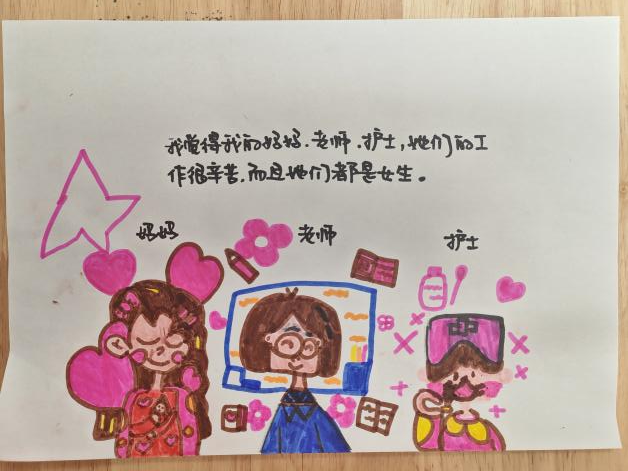 我觉得我的妈妈、老师、护士,她们的工
作很辛苦,而且她们都是女生。
妈妈
老师
护士